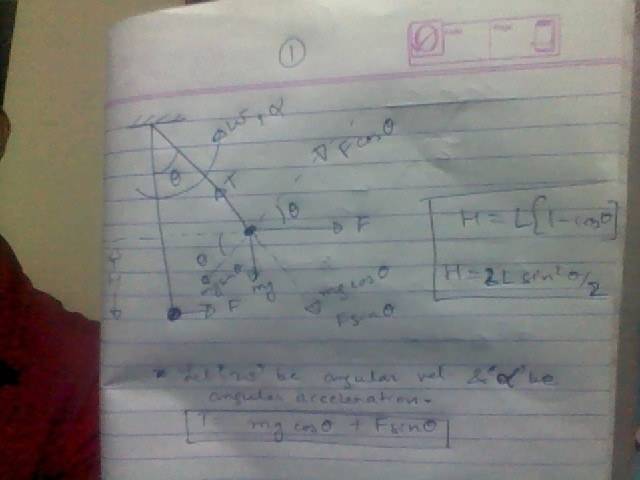 1
w, α
F cosθ
θ
T
θ
F
θ
mg sinθ
mg
mg cosθ
F sinθ
F
H
H = L[1-cosθ]
H = 2L sin²θ/2
* Let "w" be angular vel & "α" be
angular acceleration.
T = mg cosθ + F sinθ